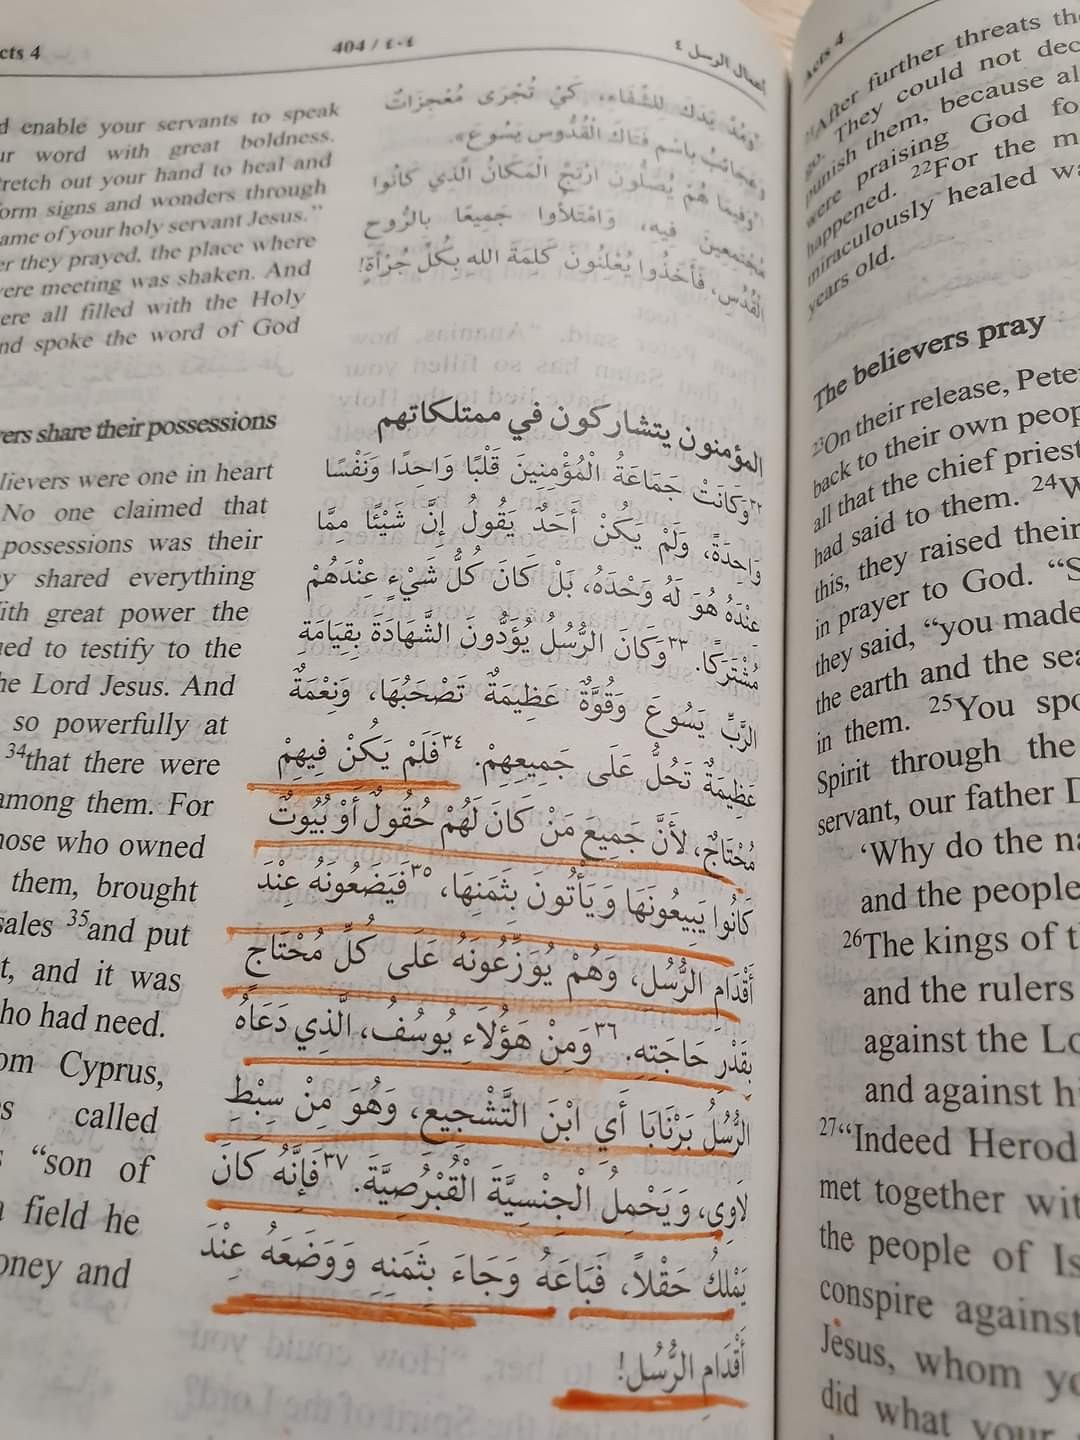 cts 4
404 / ٤٠٤
أعمال الرسل ٤
d enable your servants to speak
ur word with great boldness.
tretch out your hand to heal and
orm signs and wonders through
ame of your holy servant Jesus.”
er they prayed, the place where
ere meeting was shaken. And
ere all filled with the Holy
nd spoke the word of God
vers share their possessions
lievers were one in heart
No one claimed that
possessions was their
y shared everything
ith great power the
ued to testify to the
he Lord Jesus. And
so powerfully at
³⁴that there were
among them. For
hose who owned
them, brought
sales ³⁵and put
t, and it was
ho had need.
om Cyprus,
es called
s “son of
a field he
oney and
وَمُدَّ يَدَكَ لِلشِّفَاءِ، كَيْ تُجْرَى مُعْجِزَاتٌ
وَعَجَائِبُ بِاسْمِ فَتَاكَ الْقُدُّوسِ يَسُوعَ».
وَفِيمَا هُمْ يُصَلُّونَ ارْتَجَّ الْمَكَانُ الَّذِي كَانُوا
مُجْتَمِعِينَ فِيهِ، وَامْتَلأُوا جَمِيعًا بِالرُّوحِ
الْقُدُسِ، فَأَخَذُوا يُعْلِنُونَ كَلِمَةَ اللهِ بِكُلِّ جُرْأَةٍ!
المؤمنون يتشاركون في ممتلكاتهم
٣٢وَكَانَتْ جَمَاعَةُ الْمُؤْمِنِينَ قَلْبًا وَاحِدًا وَنَفْسًا
وَاحِدَةً، وَلَمْ يَكُنْ أَحَدٌ يَقُولُ إِنَّ شَيْئًا مِمَّا
عِنْدَهُ هُوَ لَهُ وَحْدَهُ، بَلْ كَانَ كُلُّ شَيْءٍ عِنْدَهُمْ
مُشْتَرَكًا. ٣٣وَكَانَ الرُّسُلُ يُؤَدُّونَ الشَّهَادَةَ بِقِيَامَةِ
الرَّبِّ يَسُوعَ وَقُوَّةٌ عَظِيمَةٌ تَصْحَبُهَا، وَنِعْمَةٌ
عَظِيمَةٌ تَحُلُّ عَلَى جَمِيعِهِمْ. ٣٤فَلَمْ يَكُنْ فِيهِمْ
مُحْتَاجٌ، لأَنَّ جَمِيعَ مَنْ كَانَ لَهُمْ حُقُولٌ أَوْ بُيُوتٌ
كَانُوا يَبِيعُونَهَا وَيَأْتُونَ بِثَمَنِهَا، ٣٥فَيَضَعُونَهُ عِنْدَ
أَقْدَامِ الرُّسُلِ، وَهُمْ يُوَزِّعُونَهُ عَلَى كُلِّ مُحْتَاجٍ
بِقَدْرِ حَاجَتِهِ. ٣٦وَمِنْ هَؤُلاَءِ يُوسُفُ، الَّذِي دَعَاهُ
الرُّسُلُ بَرْنَابَا أَيِ ابْنَ التَّشْجِيعِ، وَهُوَ مِنْ سِبْطِ
لاَوِي، وَيَحْمِلُ الْجِنْسِيَّةَ الْقُبْرُصِيَّةَ. ٣٧فَإِنَّهُ كَانَ
يَمْلِكُ حَقْلاً، فَبَاعَهُ وَجَاءَ بِثَمَنِهِ وَوَضَعَهُ عِنْدَ
أَقْدَامِ الرُّسُلِ!
Acts 4
²¹After further threats the
go. They could not dec
punish them, because al
were praising God fo
happened. ²²For the m
miraculously healed wa
years old.
The believers pray
²³On their release, Pete
back to their own peop
all that the chief priest
had said to them. ²⁴W
this, they raised their
in prayer to God. “S
they said, “you made
the earth and the sea
in them. ²⁵You spo
Spirit through the
servant, our father D
‘Why do the na
and the people
²⁶The kings of t
and the rulers
against the Lo
and against h
²⁷“Indeed Herod
met together wit
the people of Is
conspire against
Jesus, whom yo
did what your